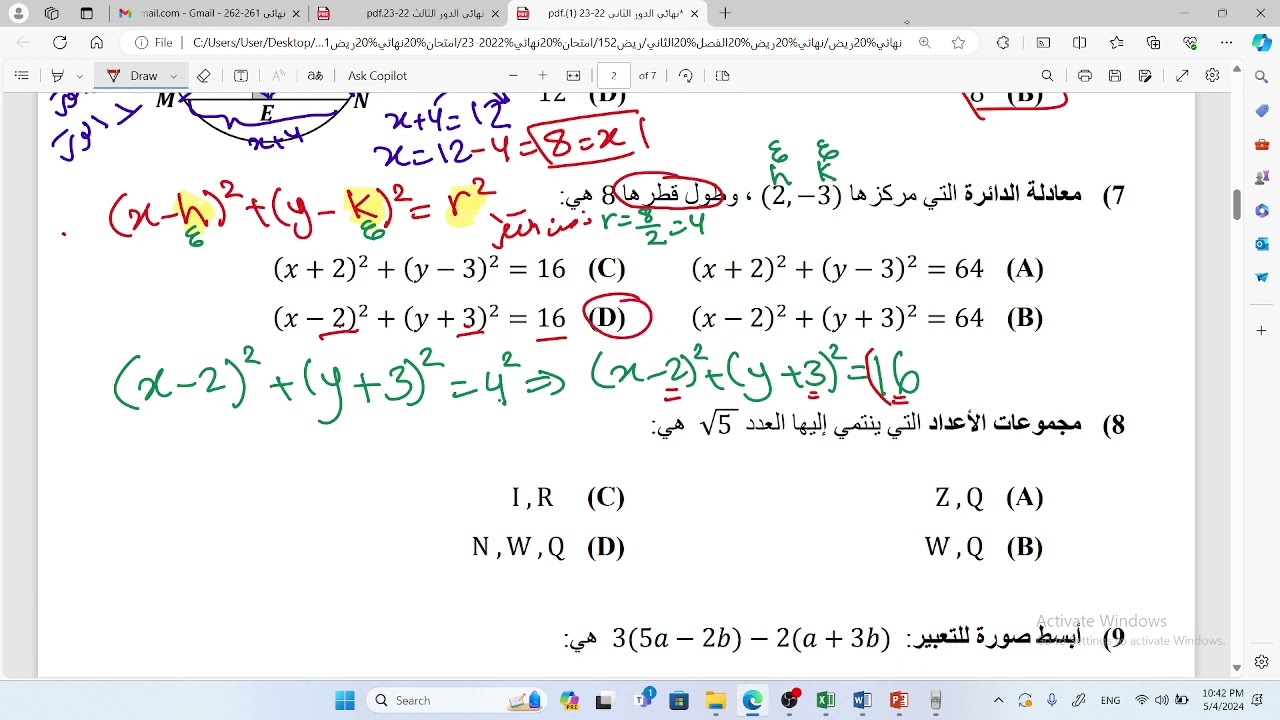 نهائي 261-262 - mail.com - Gmail
نهائي الدور الثالث 22-23.pdf
*نهائي الدور الثاني 22-23 (1).pdf
File
C:/Users/User/Desktop/
Draw
Ask Copilot
2 of 7
M E N
x+4
x+4=12
x=12-4= 8=x
12 (D)
8 (B)
ع ع
h k
7) معادلة الدائرة التي مركزها (2, −3) ، وطول قطرها 8 هي:
(x-h)² + (y-k)² = r²
ع ع
r=8/2=4
(x + 2)² + (y − 3)² = 64 (A)
(x + 2)² + (y − 3)² = 16 (C)
(x − 2)² + (y + 3)² = 64 (B)
(x − 2)² + (y + 3)² = 16 (D)
(x-2)² + (y+3)² = 4² ⇒ (x-2)² + (y+3)² = 16
8) مجموعات الأعداد التي ينتمي إليها العدد √5 هي:
Z , Q (A)
I , R (C)
W , Q (B)
N , W , Q (D)
9) أبسط صورة للتعبير: 3(5a − 2b) − 2(a + 3b) هي:
Activate Windows
Go to Settings to activate Windows.
Search
PRE
1
ENG
10:42 PM
5/4/2024